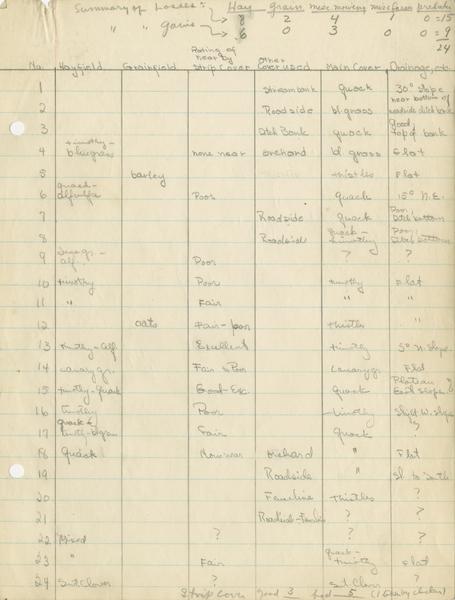 Summary of Losses: Hay grain misc. mowing misc. farm predator
8 2 4 1 0 = 15
" " Gains 6 0 3 0 0 = 9
24
No. Hayfield Grainfield Rating of near by Strip Cover Other Cover used Main Cover Drainage, etc.
1 Streambank quack 30° slope
2 Roadside bl. grass near bottom of roadside ditch bank
3 Ditch Bank quack Road, top of bank
4 timothy-bluegrass none near orchard bl. grass Flat
5 barley thistles Flat
6 quack-alfalfa Poor quack 15° N.E.
7 Roadside quack Poor, Ditch bottom
8 Roadside quack-timothy Poor, Ditch bottom
9 alf. Poor ? ?
10 timothy Poor timothy Flat
11 " Fair " "
12 oats Fair-poor thistles "
13 timothy-alf. Excellent timothy 5° N. Slope
14 canary gr. Fair to Poor Canary gr. Flat
15 timothy-quack Good-Exc. Quack Plateau East slope
16 timothy Poor timothy Slight W. slope
17 quack & Fair Quack ?
18 Quack None near Orchard " Flat
19 Roadside " Sl. to South
20 Fenceline Thistles ?
21 Roadside-Fenceline ? ?
22 Mixed ? ? ?
23 " Fair quack-timothy Flat
24 Swt Clover ? Swt. Clover ?
Strip Cover good 3 bad 5